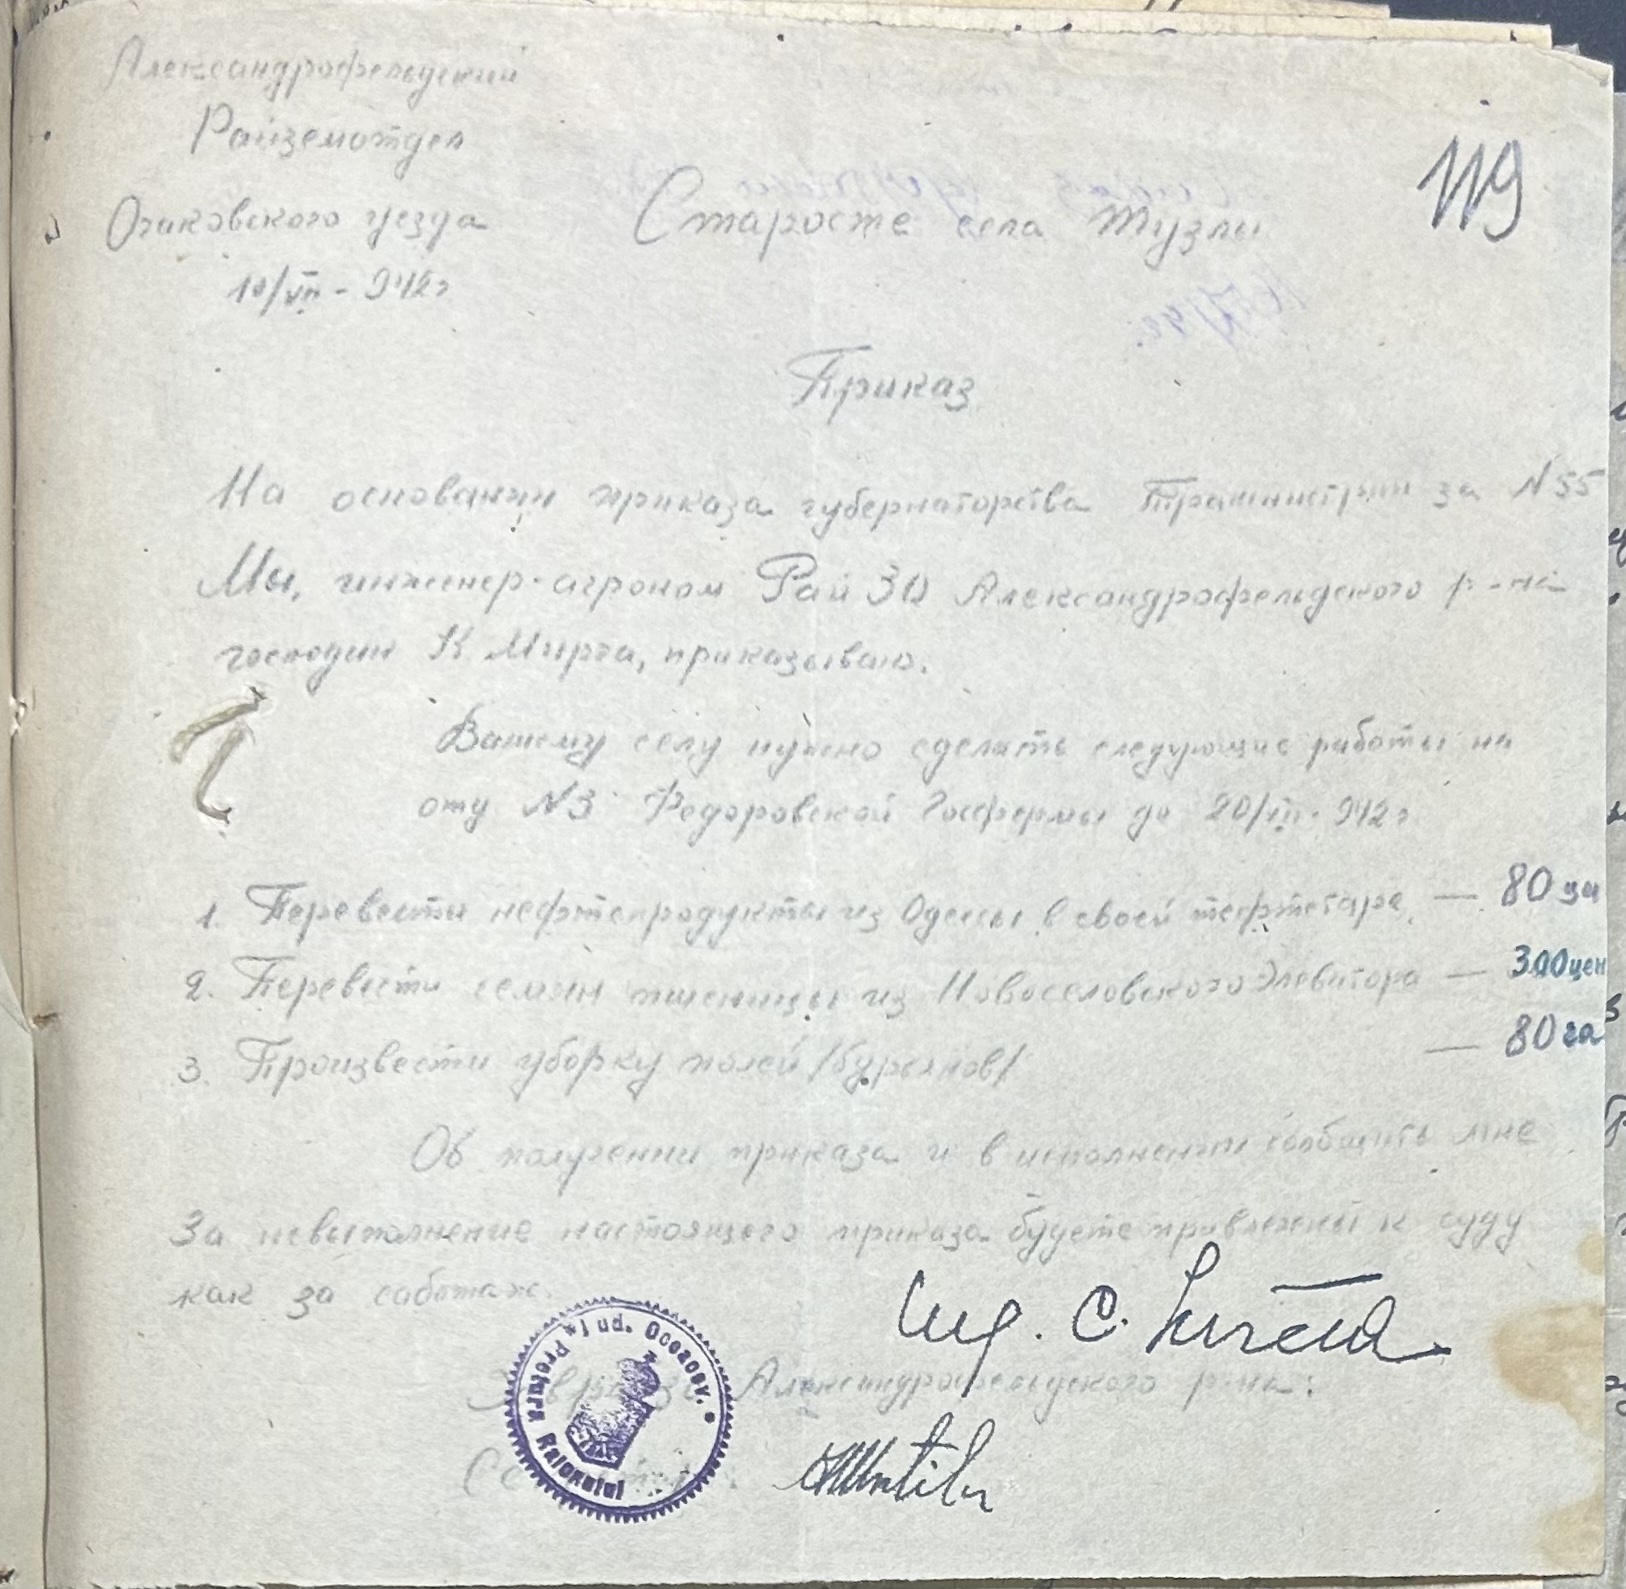 Александрофельдский
Райземотдел
Очаковского уезда
10/VII - 942 г
119
Старосте села Тузлы
Приказ
На основании приказа губернаторства Транинистрии за N 55
Мы, инженер-агроном Рай ЗО Александрофельдского р-на
господин К. Мирча, приказываю.
Вашему селу нужно сделать следующие работы на
оту N3 Федоровской Госфермы до 20/VII - 942 г
1. Перевести нефтепродукты из Одессы в своей — 80 цн
2. Перевести семян пшеницы из Новоселовского Элеватора — 300 цен
3. Произвести уборку полей /бурьянов/ — 80 га
Об получении приказа и в исполнении сообщить мне
За невыполнение настоящего приказа будете привлечены к суду
как за саботаж.
Александрофельдского р-на:
Pretura Raionului jud. Oceacov.